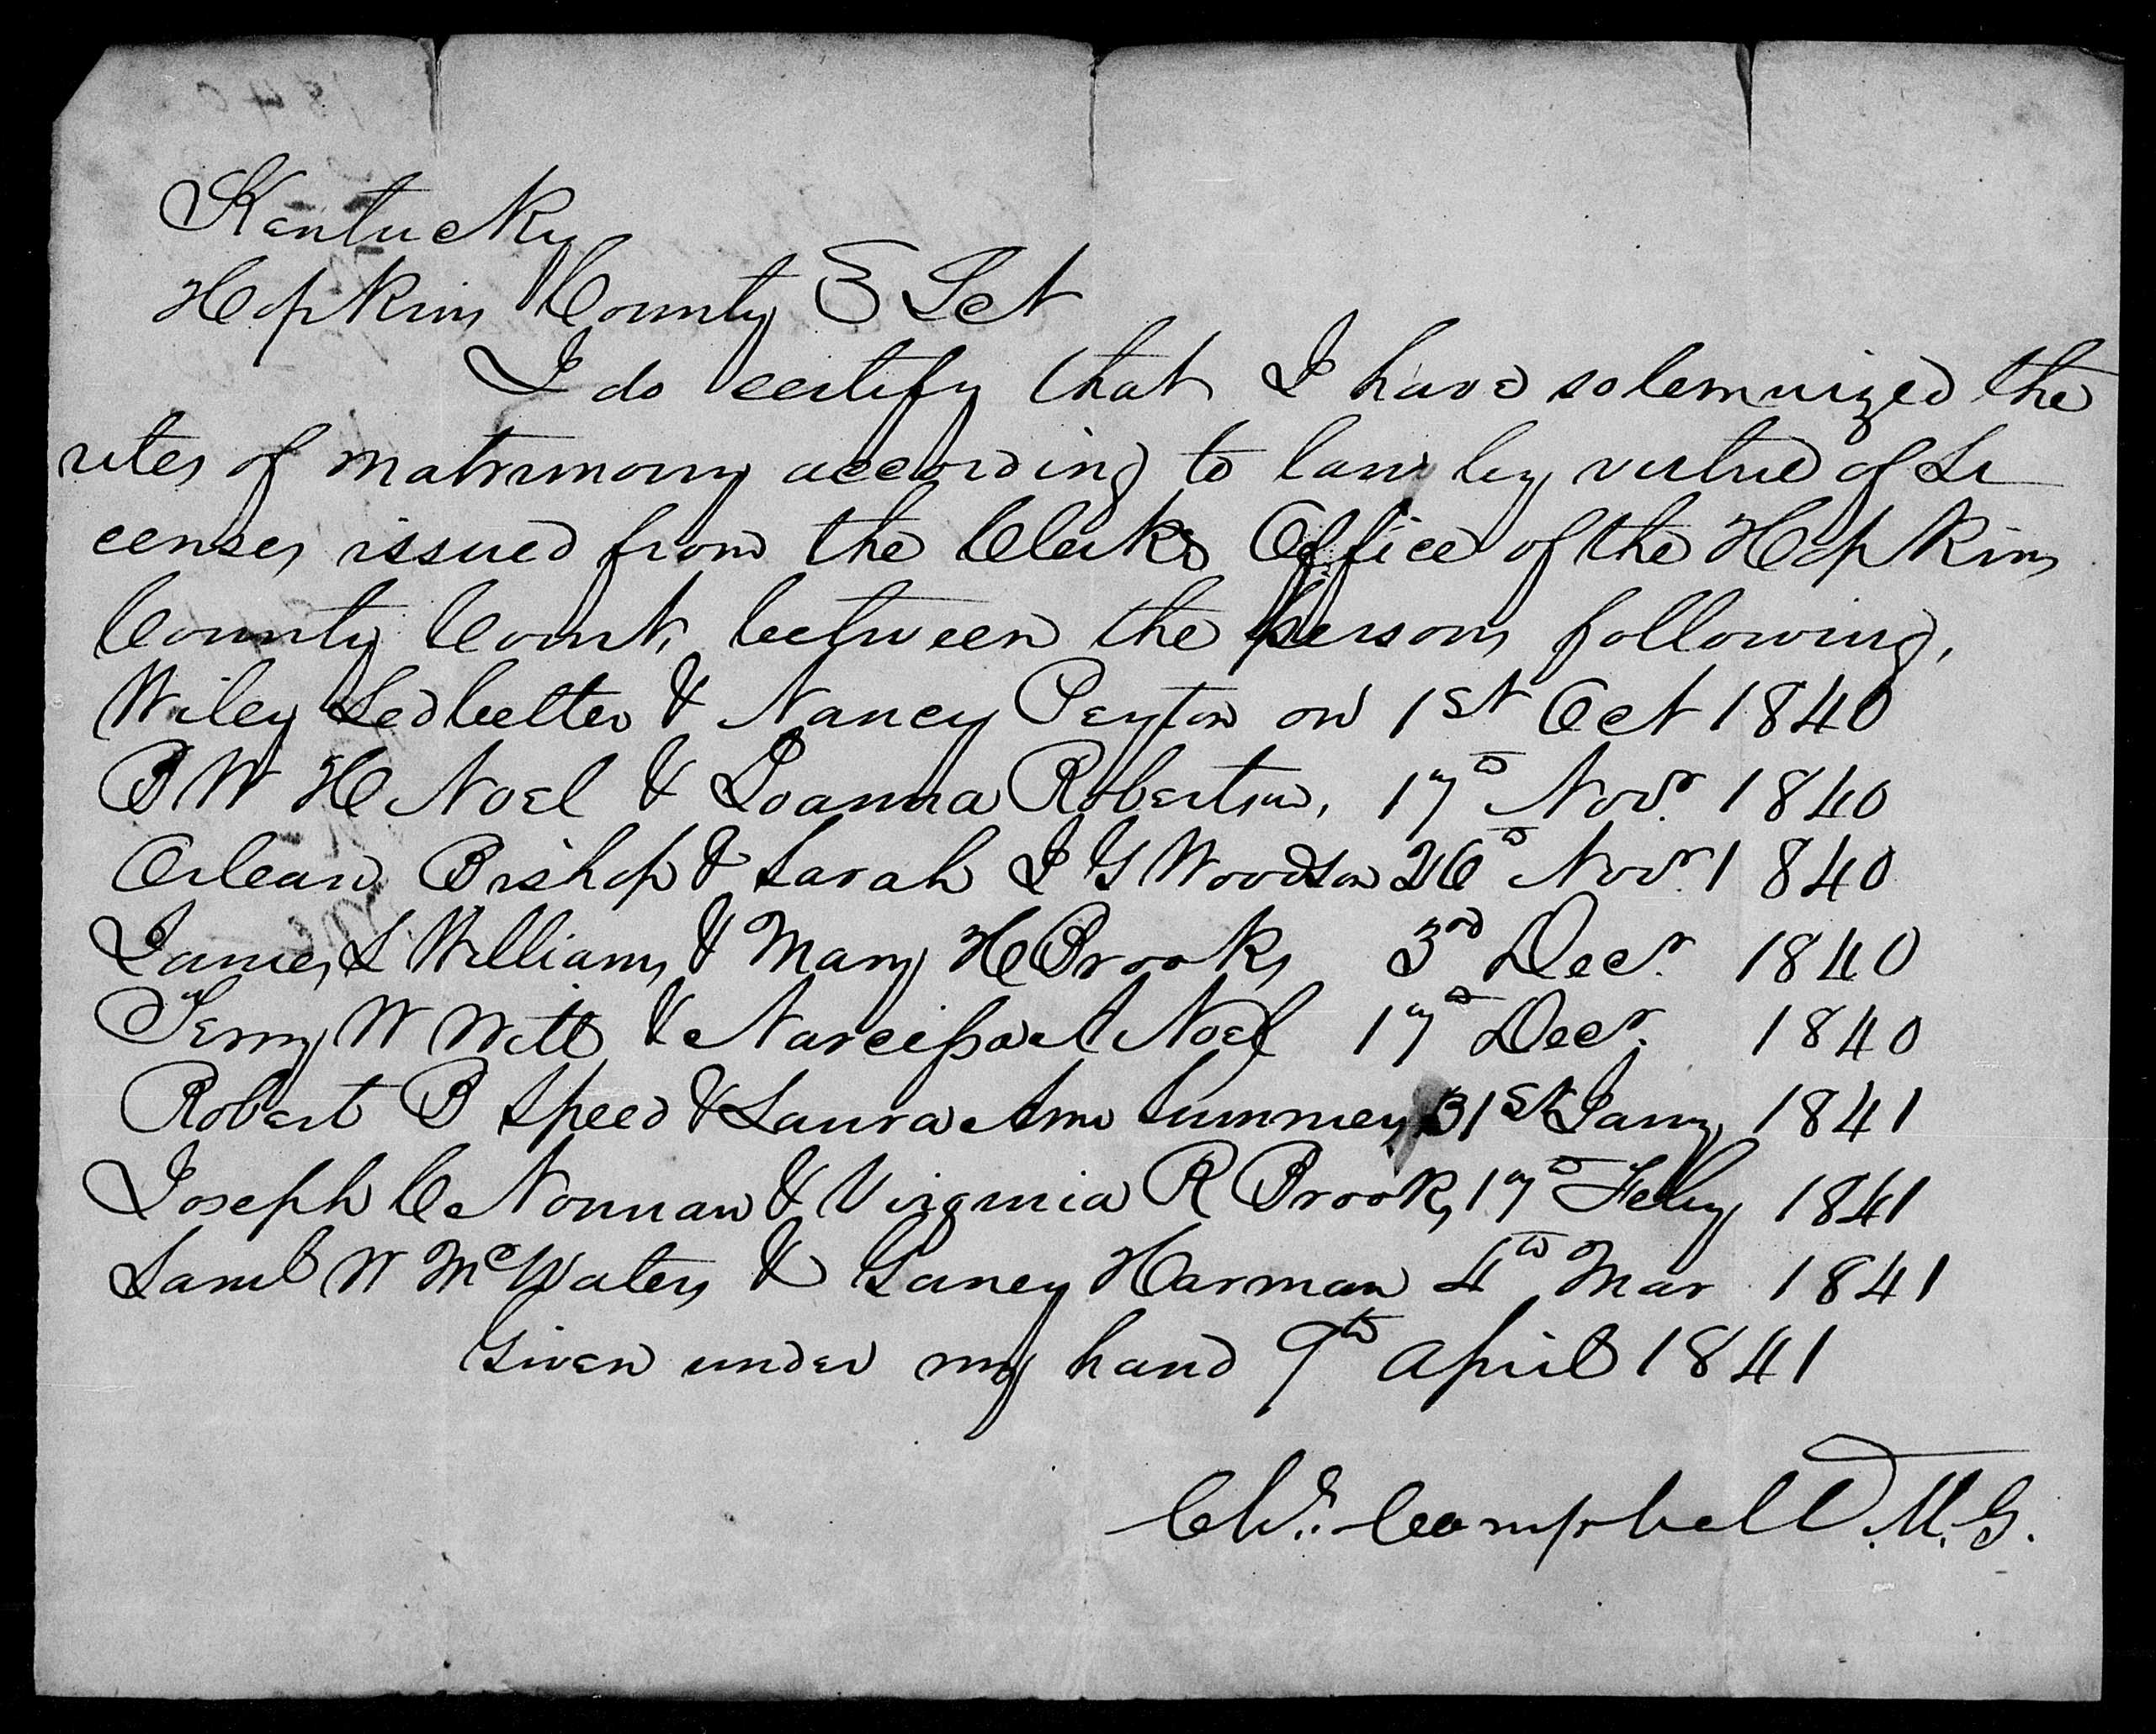 Kentucky
Hopkins County Sct
I do certify that I have solemnized the
rites of matrimony according to law by virtue of Li
censes issued from the Clerks Office of the Hopkins
County Court, between the persons following,
Wiley Ledbetter & Nancy Peyton on 1st Oct 1840
B W H Noel & Joanna Robertson, 17th Novr. 1840
Orlean Bishop & Sarah J G Woodson 26th Novr. 1840
James L Williams & Mary H Brooks 3rd Decr. 1840
W Witt & Narcissa A Noel 17th Decr. 1840
Robert B Speed & Laura Ann 31st Jany 1841
Joseph C Norman & Virginia R Brooks 17th Feby 1841
Saml W McWaters & Haney Harman 4th Mar 1841
Given under my hand 9th April 1841
Chs. Campbell. M. G.